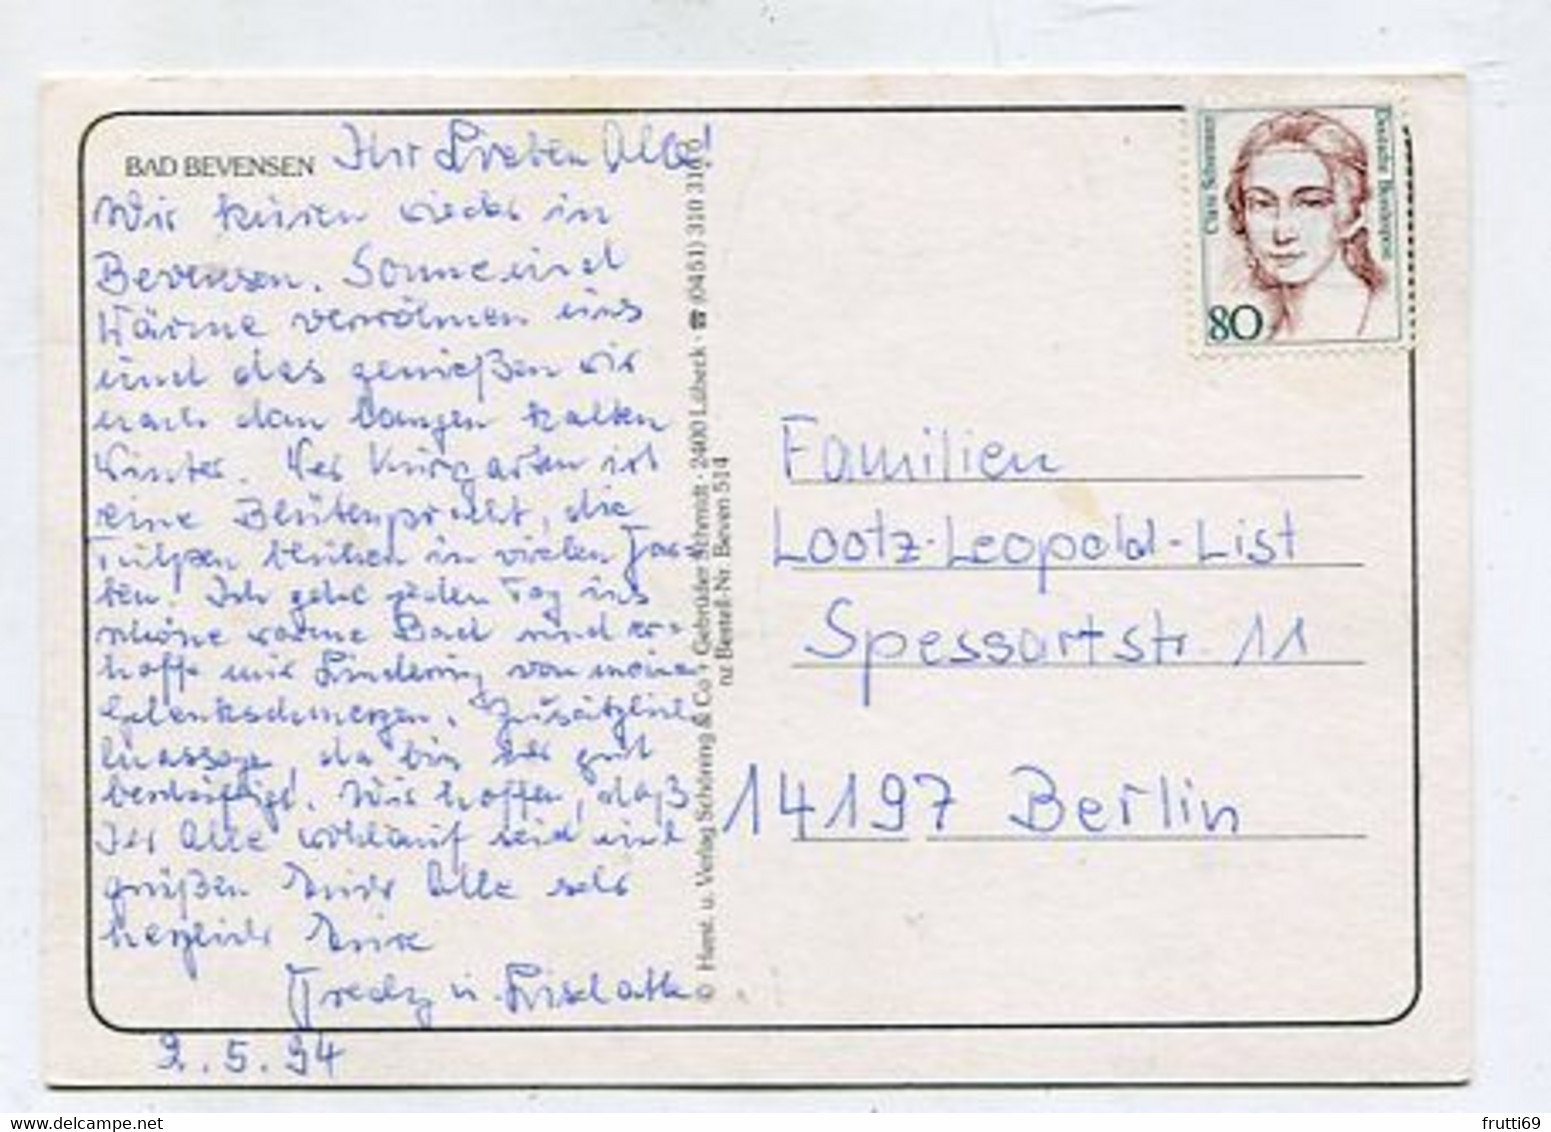 BAD BEVENSEN
Ihr Lieben Alle!
Wir kuren wieder in
Bevensen. Sonne und
Wärme verwöhnen uns
und das genießen wir
nach dem langen kalten
Winter. Der Kurgarten ist
eine Blütenpracht, die
Tulpen blühen in vielen Far-
ben. Ich gehe jeden Tag ins
schöne warme Bad und er-
hoffe mir Linderung von meinen
Gelenkschmerzen. Zusätzlich
Massage, da bin ich gut
beschäftigt. Wir hoffen, daß
Ihr Alle wohlauf seid und
grüßen Euch Alle sehr
herzlich Eure
Fredy u. Liselotte
2.5.94
© Herst. u. Verlag Schöning & Co + Gebrüder Schmidt · 2400 Lübeck · ☎ (0451) 310 31
nz Bestell-Nr. Beven 514
Clara Schumann
Deutsche Bundespost
80
Familien
Lootz-Leopold-List
Spessartstr. 11
14197 Berlin
frutti69